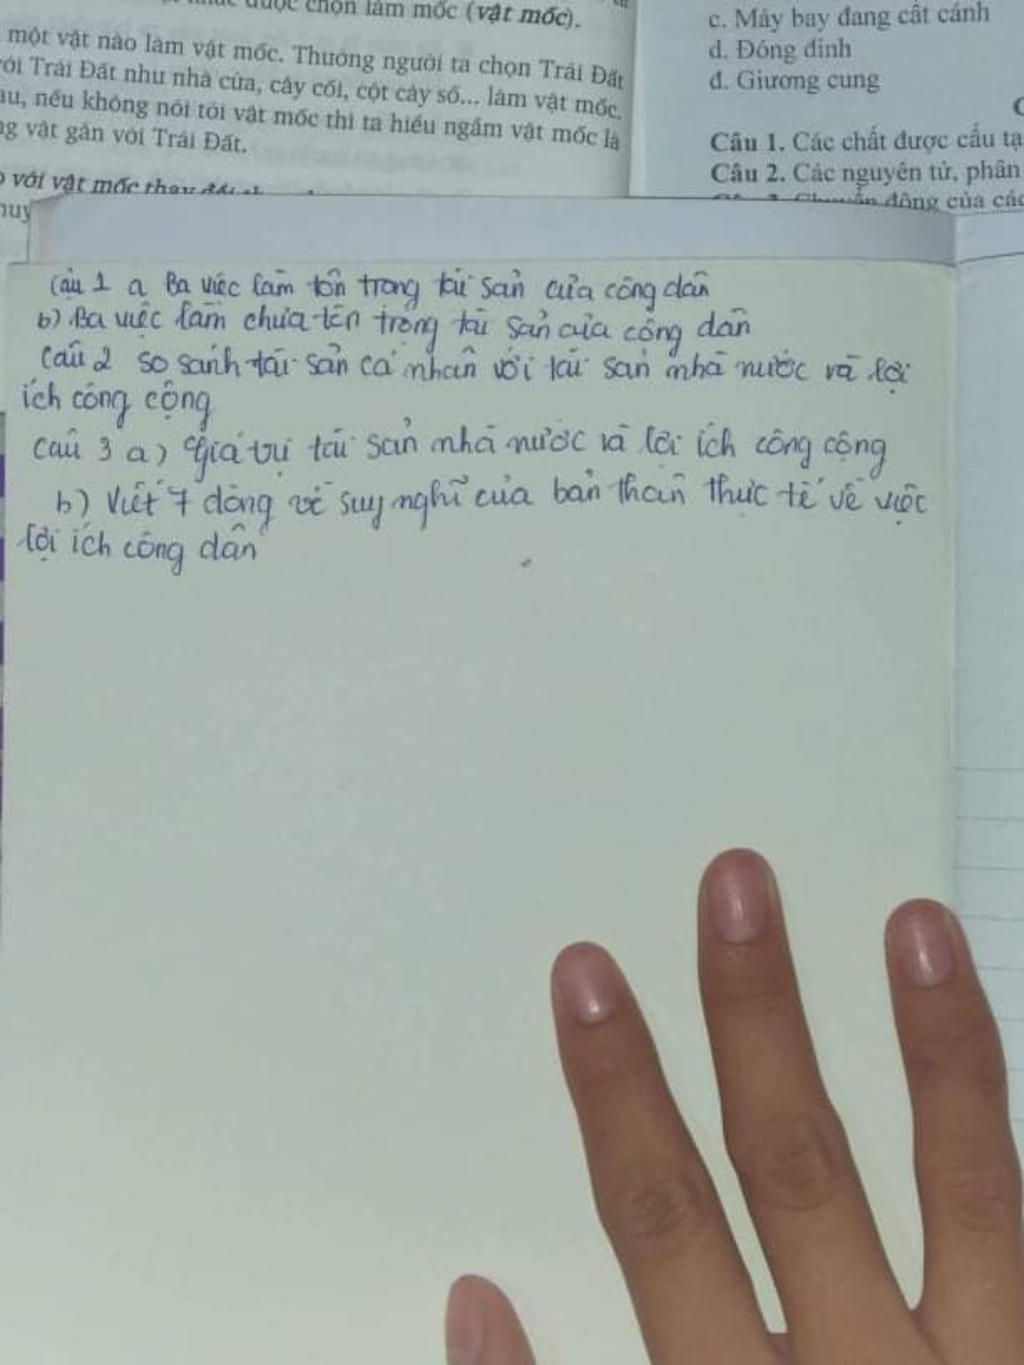 được chọn làm mốc (vật mốc).
một vật nào làm vật mốc. Thường người ta chọn Trái Đất
với Trái Đất như nhà cửa, cây cối, cột cây số... làm vật mốc.
nếu không nói tới vật mốc thì ta hiểu ngầm vật mốc là
vật gắn với Trái Đất.
với vật mốc thay đổi
c. Máy bay đang cất cánh
d. Đóng đinh
đ. Giương cung
Câu 1. Các chất được cấu tạ
Câu 2. Các nguyên tử, phân
Chuyển động của các
Câu 1 a Ba việc làm tôn trong tài sản của công dân
b) Ba việc làm chưa tôn trong tài sản của công dân
Câu 2 so sánh tài sản cá nhân với tài sản nhà nước và lợi
ích công cộng
Câu 3 a) Giá trị tài sản nhà nước và lợi ích công cộng
b) Viết 7 dòng về suy nghĩ của bản thân thực tế về việc
lợi ích công dân